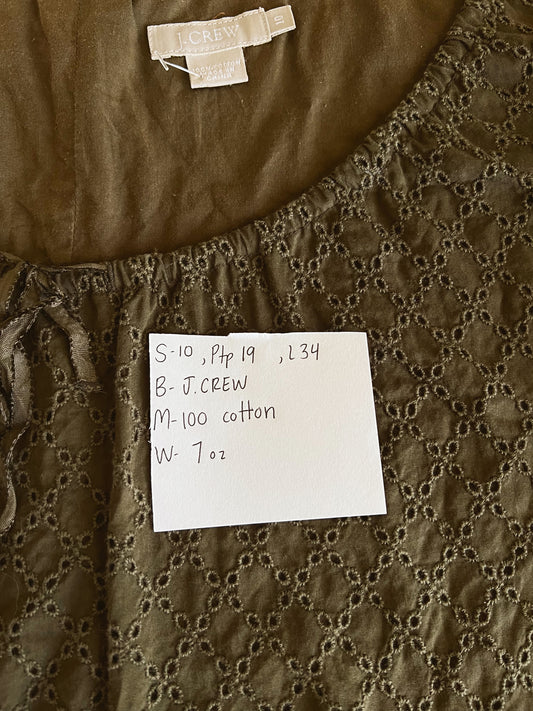 J.CREW
10
100% COTTON
MADE IN
CHINA
S-10, Ptp 19 , L34
B- J.CREW
M-100 cotton
W- 7 oz